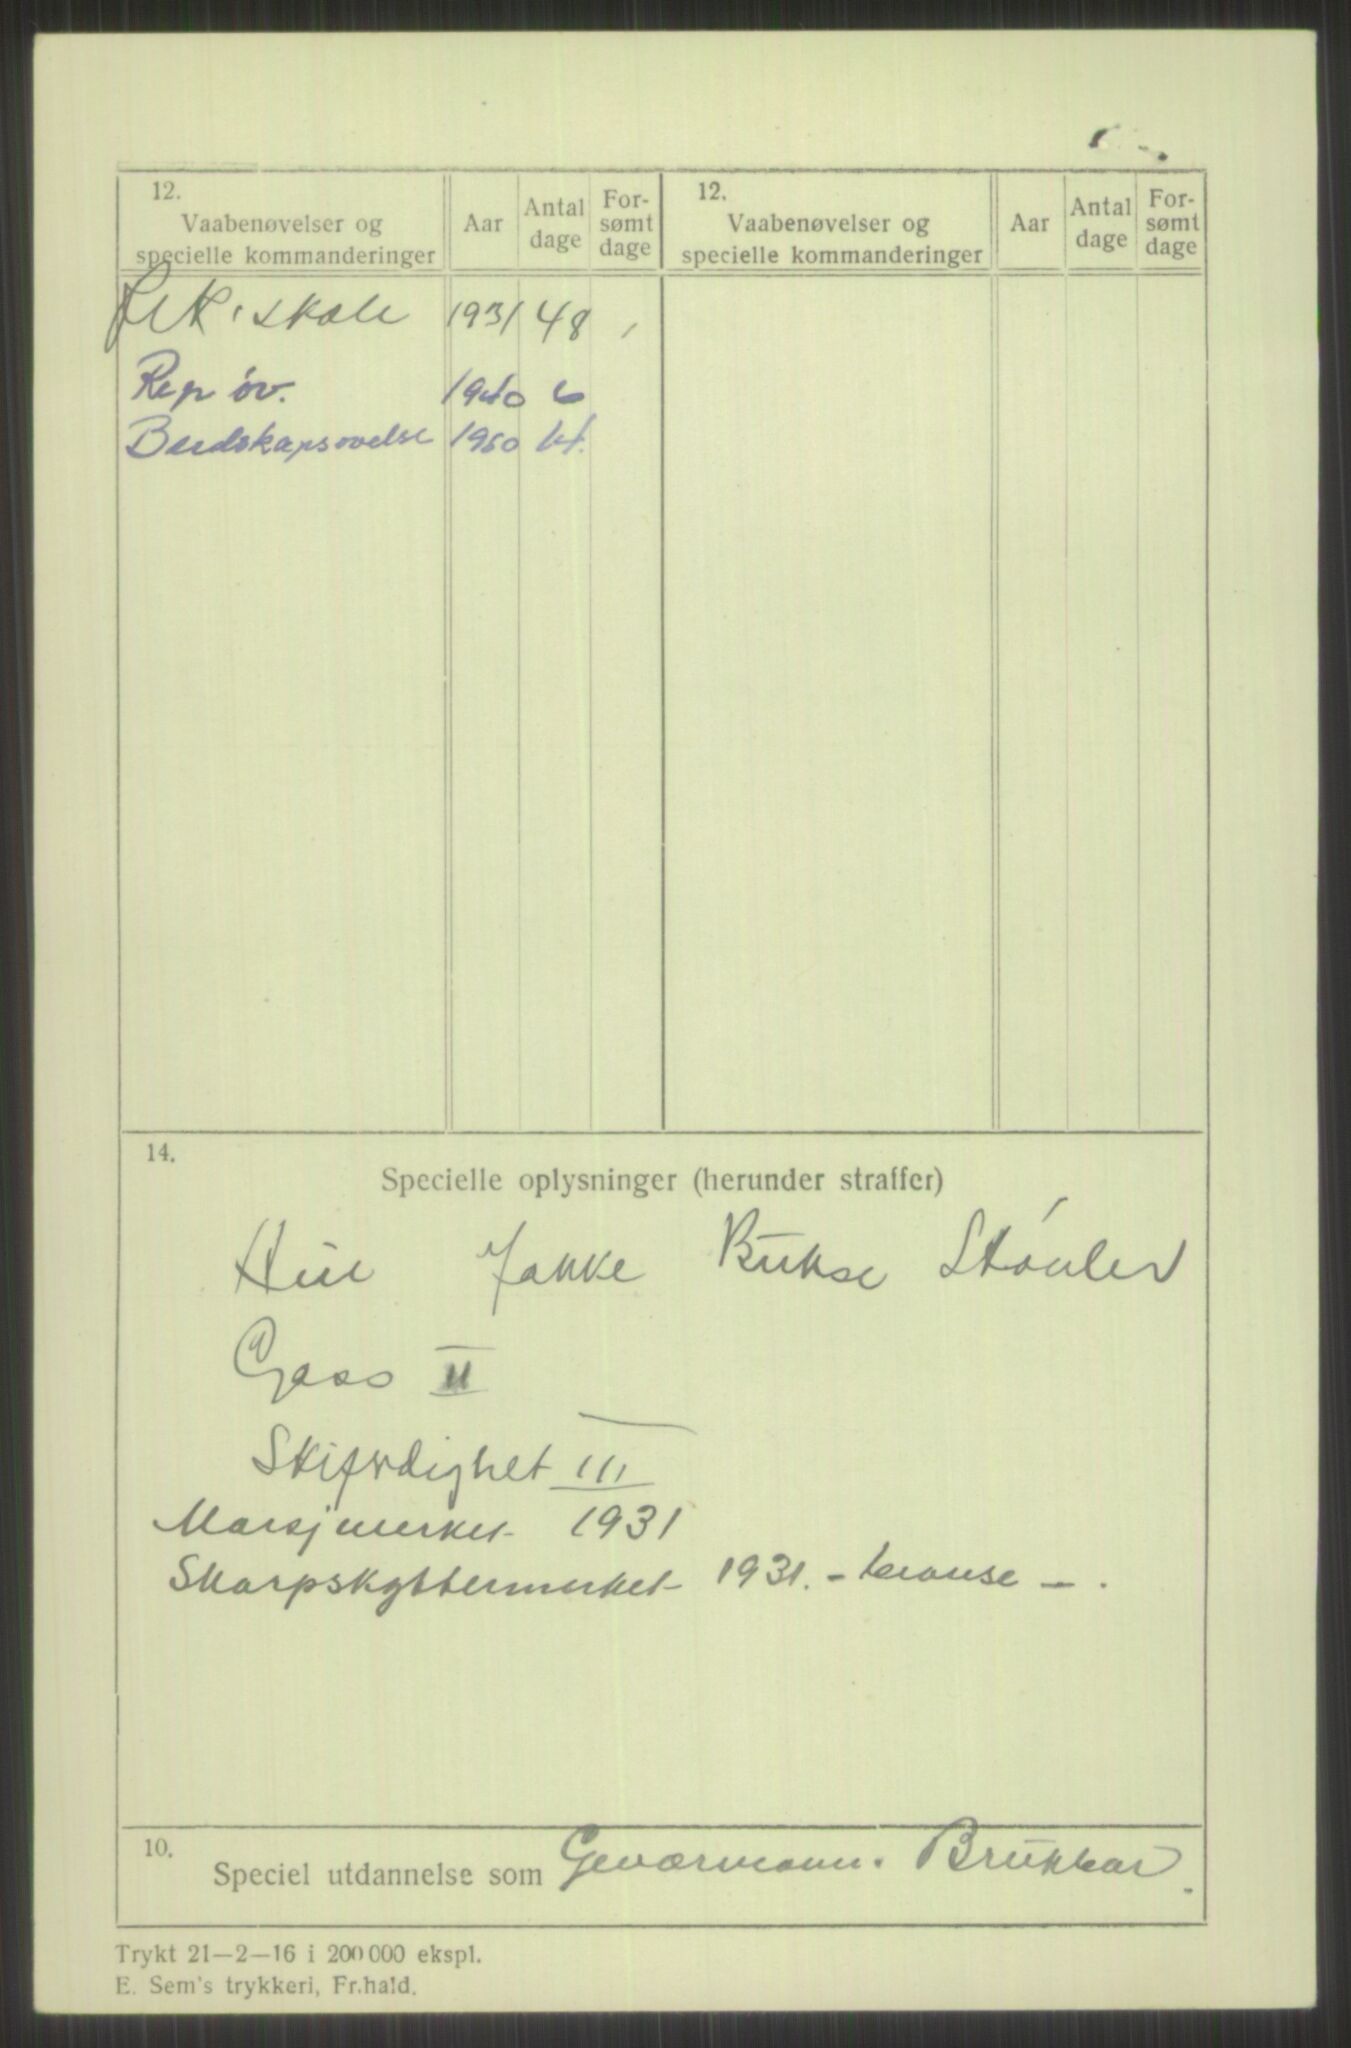 12.
Vaabenøvelser og
specielle kommanderinger
Aar
Antal
dage
For-
sømt
dage
12.
Vaabenøvelser og
specielle kommanderinger
Aar
Antal
dage
For-
sømt
dage
skole 1931 48
Rep øv. 1940 6
1960 14.
14.
Specielle oplysninger (herunder straffer)
Hue Jakke Bukse Støvler
Gass II
Skiferdighet III
Marsjmerket 1931
Skarpskyttermerket 1931. -
10.
Speciel utdannelse som Geværmann. Brukbar.
Trykt 21—2—16 i 200 000 ekspl.
E. Sem's trykkeri, Fr.hald.